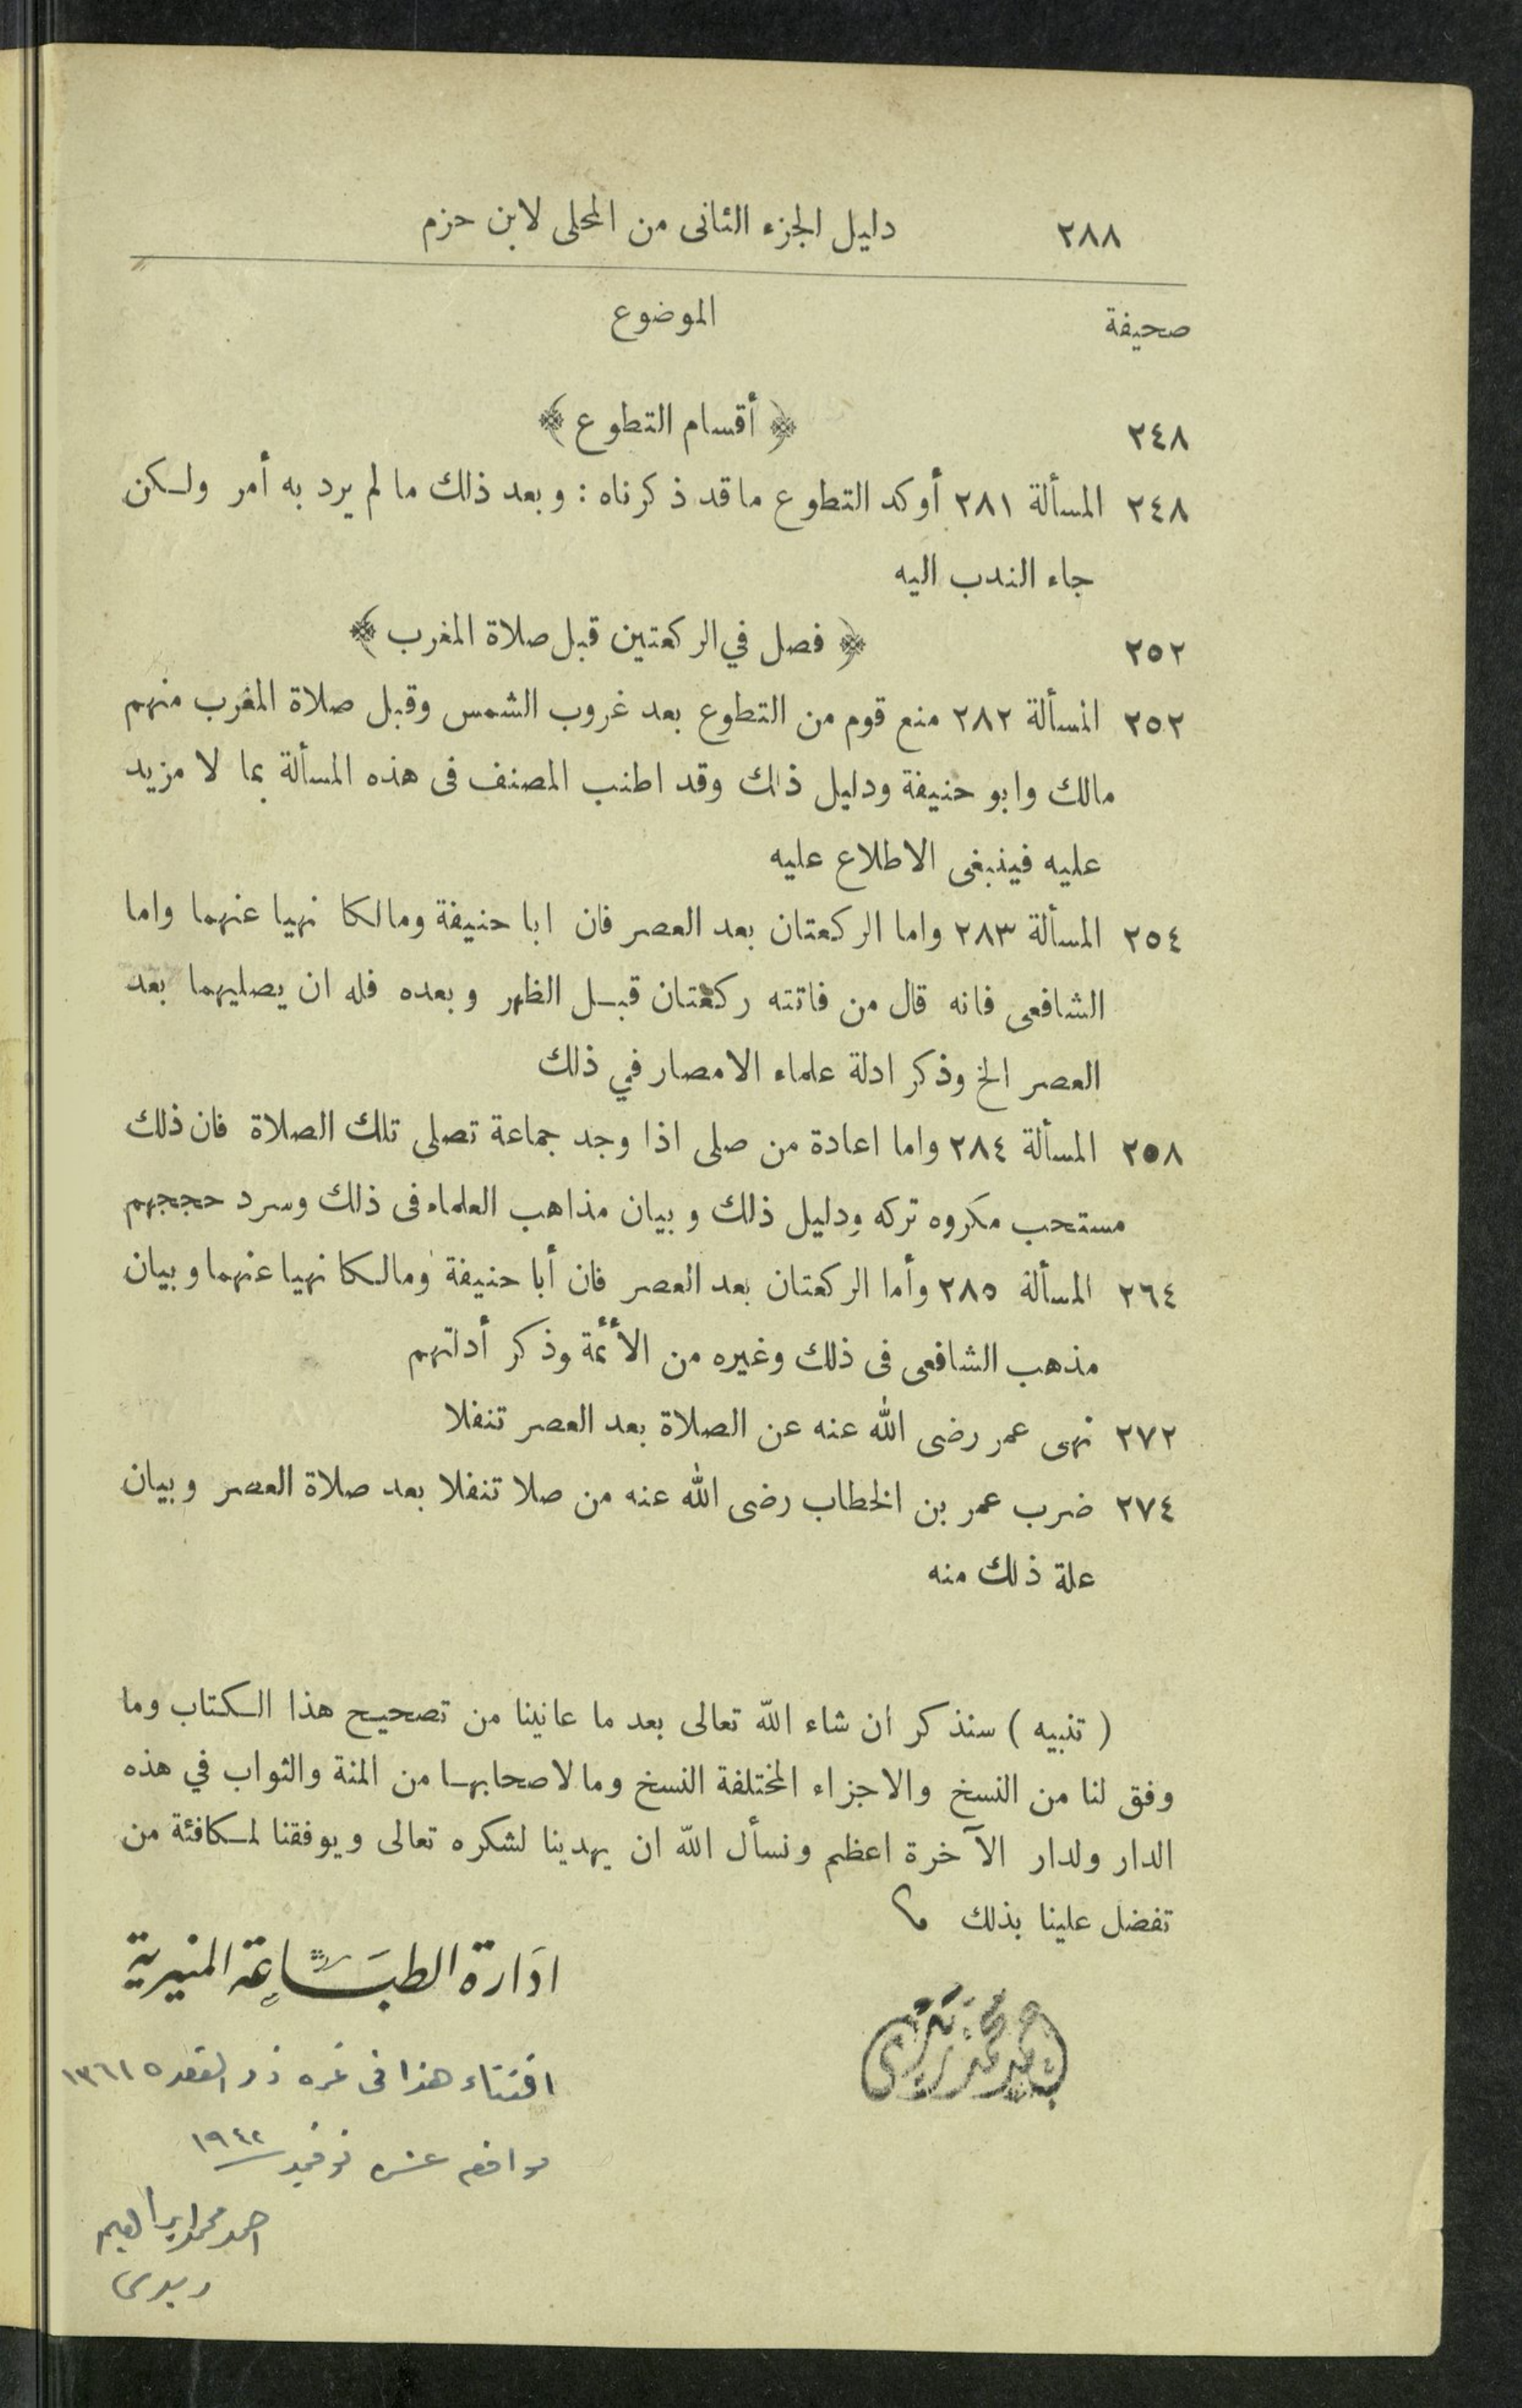 ٢٨٨ دليل الجزء الثانى من المحلى لابن حزم
صحيفة الموضوع
٢٤٨ ﴿ أقسام التطوع ﴾
٢٤٨ المسألة ٢٨١ أوكد التطوع ما قد ذكرناه : وبعد ذلك ما لم يرد به أمر ولكن
جاء الندب اليه
٢٥٢ ﴿ فصل في الركعتين قبل صلاة المغرب ﴾
٢٥٢ المسألة ٢٨٢ منع قوم من التطوع بعد غروب الشمس وقبل صلاة المغرب منهم
مالك وابو حنيفة ودليل ذلك وقد اطنب المصنف فى هذه المسألة بما لا مزيد
عليه فينبغى الاطلاع عليه
٢٥٤ المسألة ٢٨٣ واما الركعتان بعد العصر فان ابا حنيفة ومالكا نهيا عنهما واما
الشافعى فانه قال من فاتته ركعتان قبل الظهر وبعده فله ان يصليهما بعد
العصر الخ وذكر ادلة علماء الامصار في ذلك
٢٥٨ المسألة ٢٨٤ واما اعادة من صلى اذا وجد جماعة تصلى تلك الصلاة فان ذلك
مستحب مكروه تركه ودليل ذلك وبيان مذاهب العلماء فى ذلك وسرد حججهم
٢٦٤ المسألة ٢٨٥ وأما الركعتان بعد العصر فان أبا حنيفة ومالكا نهيا عنهما وبيان
مذهب الشافعى فى ذلك وغيره من الأئمة وذكر أدلتهم
٢٧٢ نهى عمر رضى الله عنه عن الصلاة بعد العصر تنفلا
٢٧٤ ضرب عمر بن الخطاب رضى الله عنه من صلا تنفلا بعد صلاة العصر وبيان
علة ذلك منه
( تنبيه ) سنذكر ان شاء الله تعالى بعد ما عانينا من تصحيح هذا الكتاب وما
وفق لنا من النسخ والاجزاء المختلفة النسخ وما لاصحابها من المنة والثواب في هذه
الدار ولدار الآخرة اعظم ونسأل الله ان يهدينا لشكره تعالى ويوفقنا لمكافئة من
تفضل علينا بذلك
ادارة الطباعة المنيرية
اقتناء هذا فى غره ذو القعده ١٣٦١
نوفمبر ١٩٤٢
احمد محمد ابراهيم